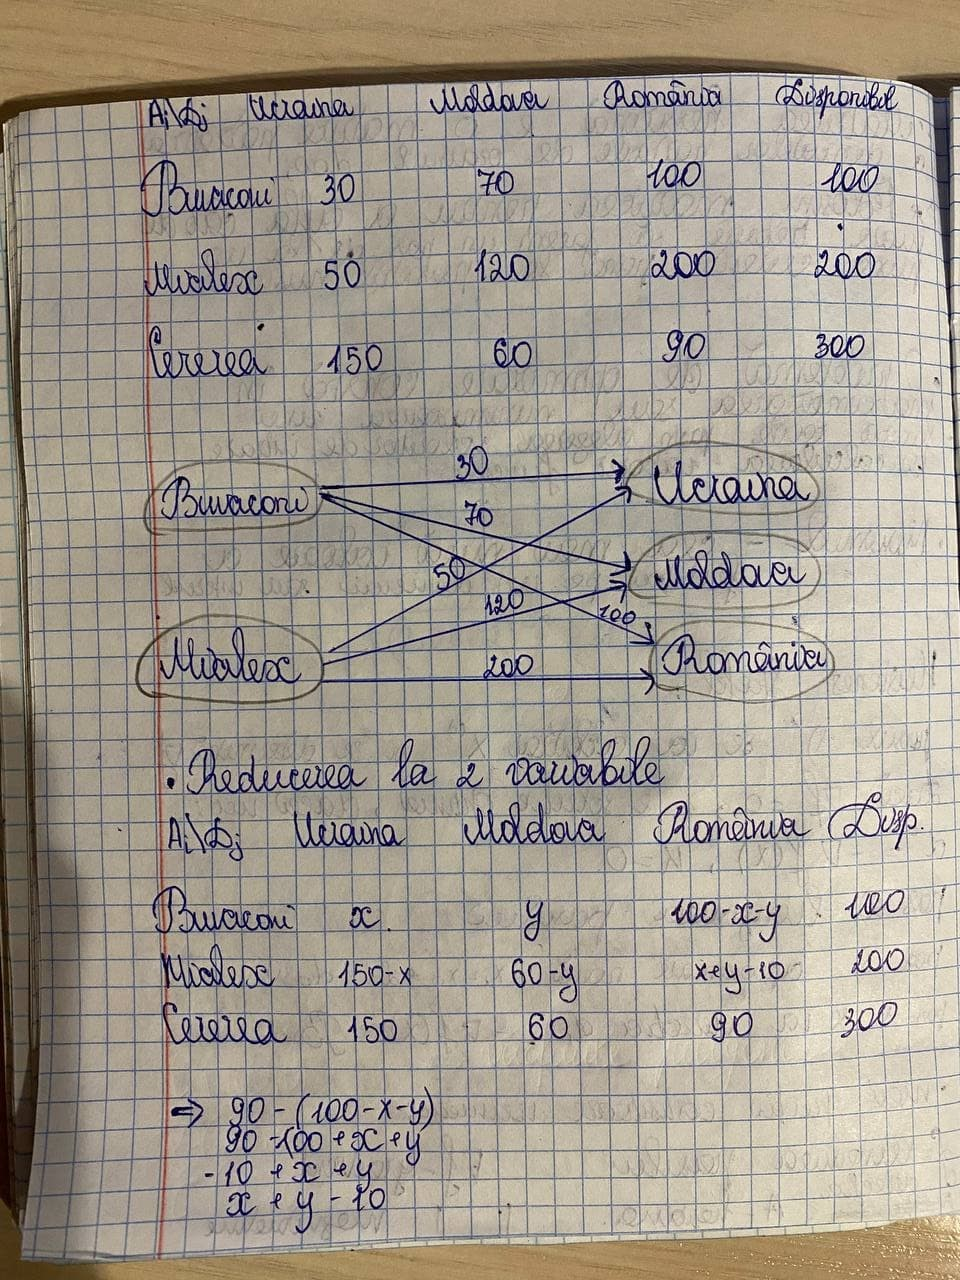 Ai\Dj Ucraina Moldova România Disponibil
Bucaconi 30 70 100 100
Mialex 50 120 200 200
Cererea 150 60 90 300
30
Ucraina
70
50
Moldova
120
100
Mialex
200
România
• Reducerea la 2 variabile
Ai\Dj Ucraina Moldova România Disp.
x y 100-x-y 100
Mialex 150-x 60-y x+y-10 200
Cererea 150 60 90 300
⇒ 90-(100-x-y)
90-100+x+y
-10+x+y
x+y-10